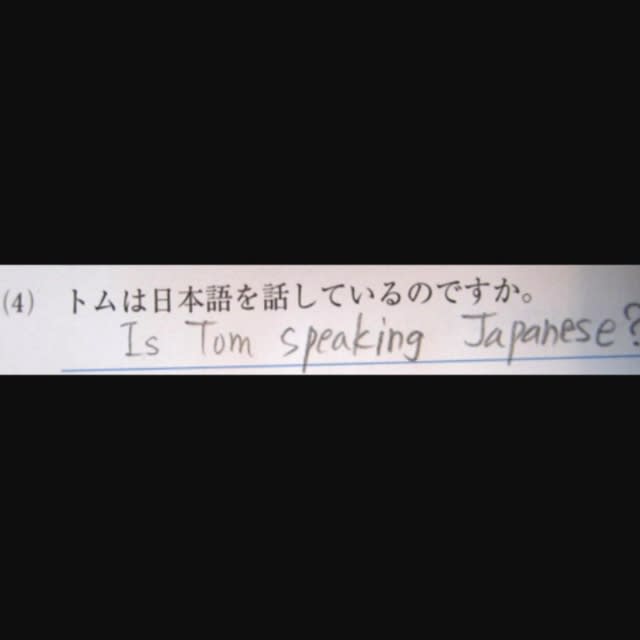 (4) トムは日本語を話しているのですか。
Is Tom speaking Japanese?